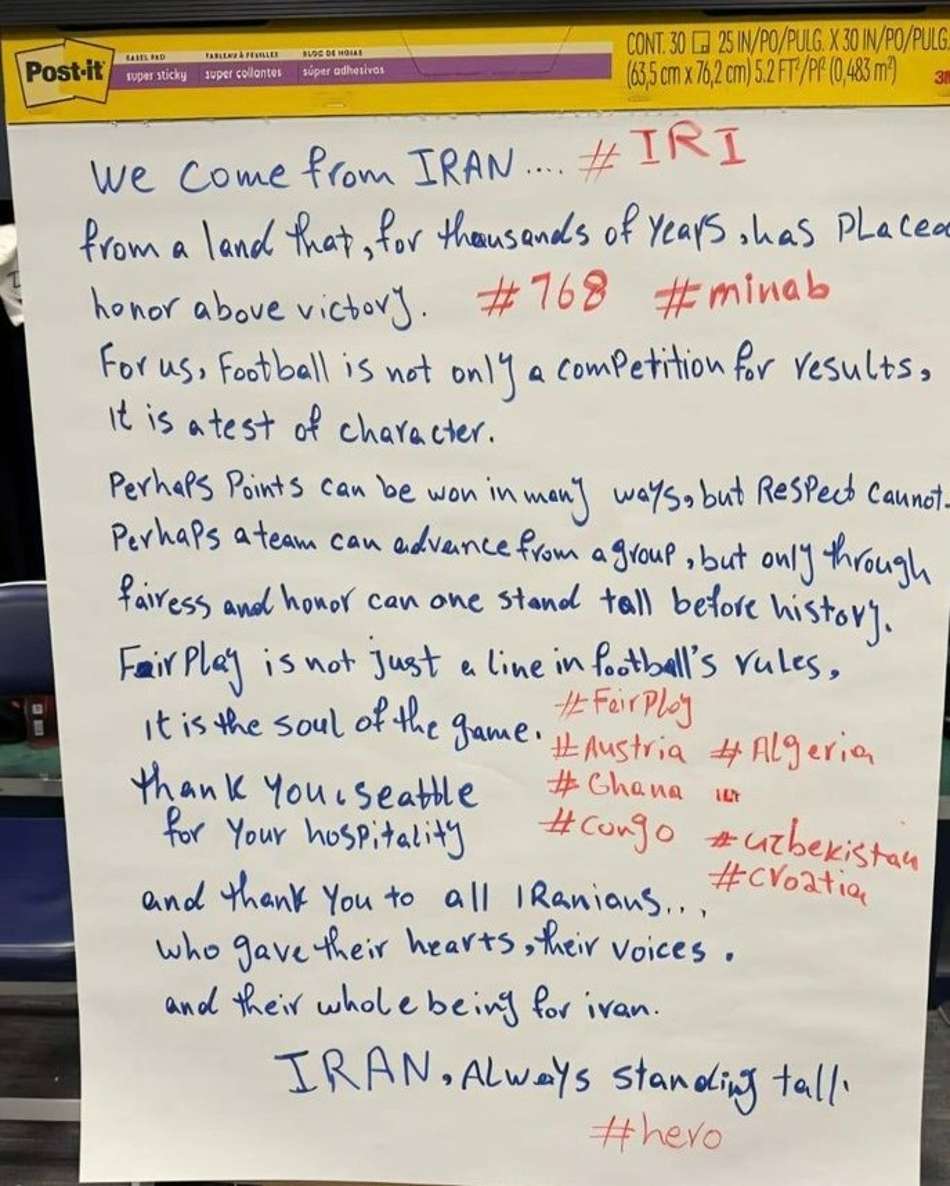 Post-it
EASEL PAD
super sticky
TABLEAU À FEUILLES
super collantes
BLOC DE HOJAS
súper adhesivas
CONT. 30 25 IN/PO/PULG. X 30 IN/PO/PULG
(63,5 cm x 76,2 cm) 5.2 FT²/PI² (0,483 m²)
3M
We come from IRAN .... # IRI
from a land that, for thousands of years, has placed
honor above victory. #768 #minab
For us, Football is not only a competition for results,
It is a test of character.
Perhaps Points can be won in many ways, but Respect cannot.
Perhaps a team can advance from a group, but only through
fairess and honor can one stand tall before history.
Fair Play is not just a line in football's rules,
it is the soul of the game. #FairPlay
#Austria #Algeria
thank you, seattle #Ghana
for your hospitality #congo #uzbekistan
#croatia
and thank you to all IRanians...,
who gave their hearts, their voices.
and their whole being for iran.
IRAN, Always standing tall.
#hero